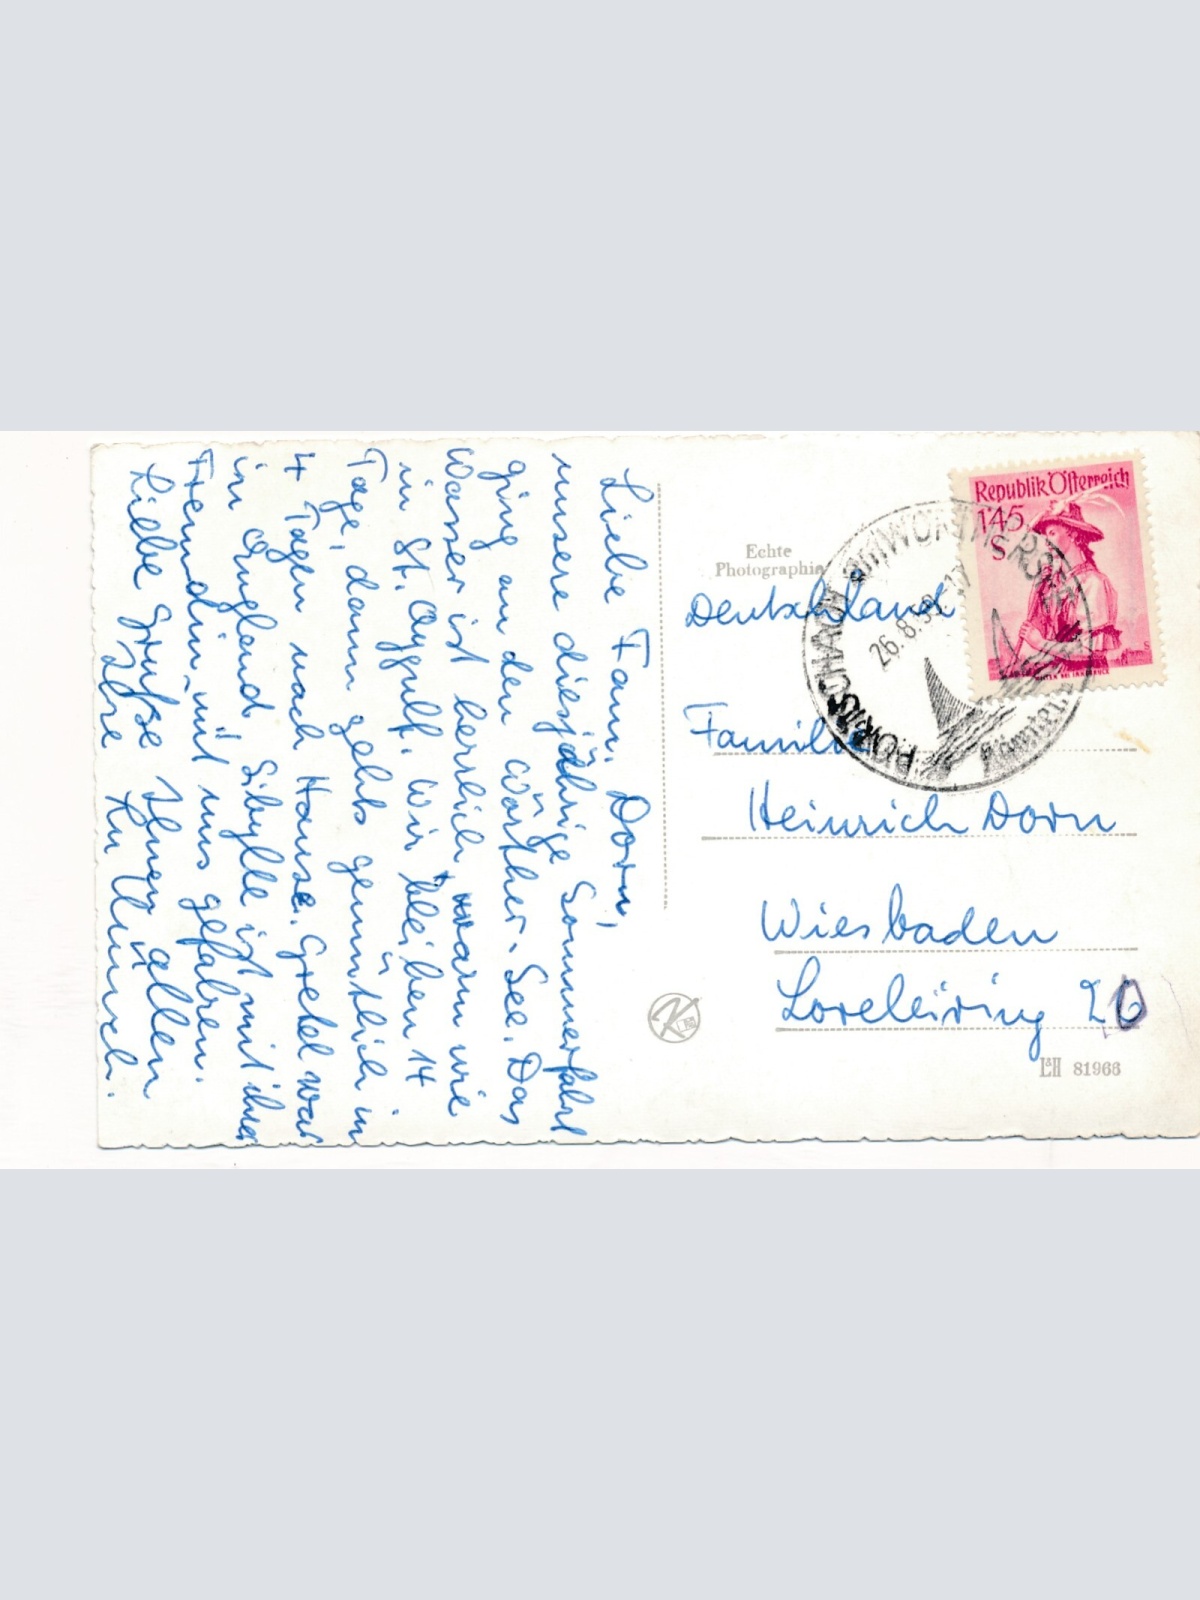 Liebe Fam. Dorn,
unsere diesjährige Sommerfahrt
ging an den Wörther-See. Das
Wasser ist herrlich, warm wie
in St. Wir bleiben 14
Tage, dann gehts gemütlich in
4 Tagen nach Hause. Gretel war
in England, Sibylle ist mit ihrer
Freundin mit uns gefahren.
Liebe Grüße Ihnen allen
Ihre
Echte
Photographie
Deutschland
Familie
Heinrich Dorn
Wiesbaden
Loreleiring
L&H 81966
Republik Österreich
1·45
S
PÖRTSCHACH am WÖRTHERSEE
26.8.
Kärnten
K